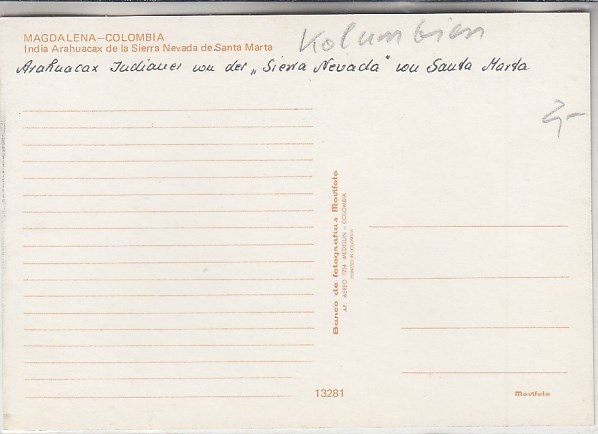 MAGDALENA–COLOMBIA
India Arahuacax de la Sierra Nevada de Santa Marta
Kolumbien
Arahuacax Indianer von der „Sierra Nevada" von Santa Marta
2,-
Banco de fotografias Mostfoto
AP. AEREO 1254 MEDELLIN – COLOMBIA
13281
Mostfoto